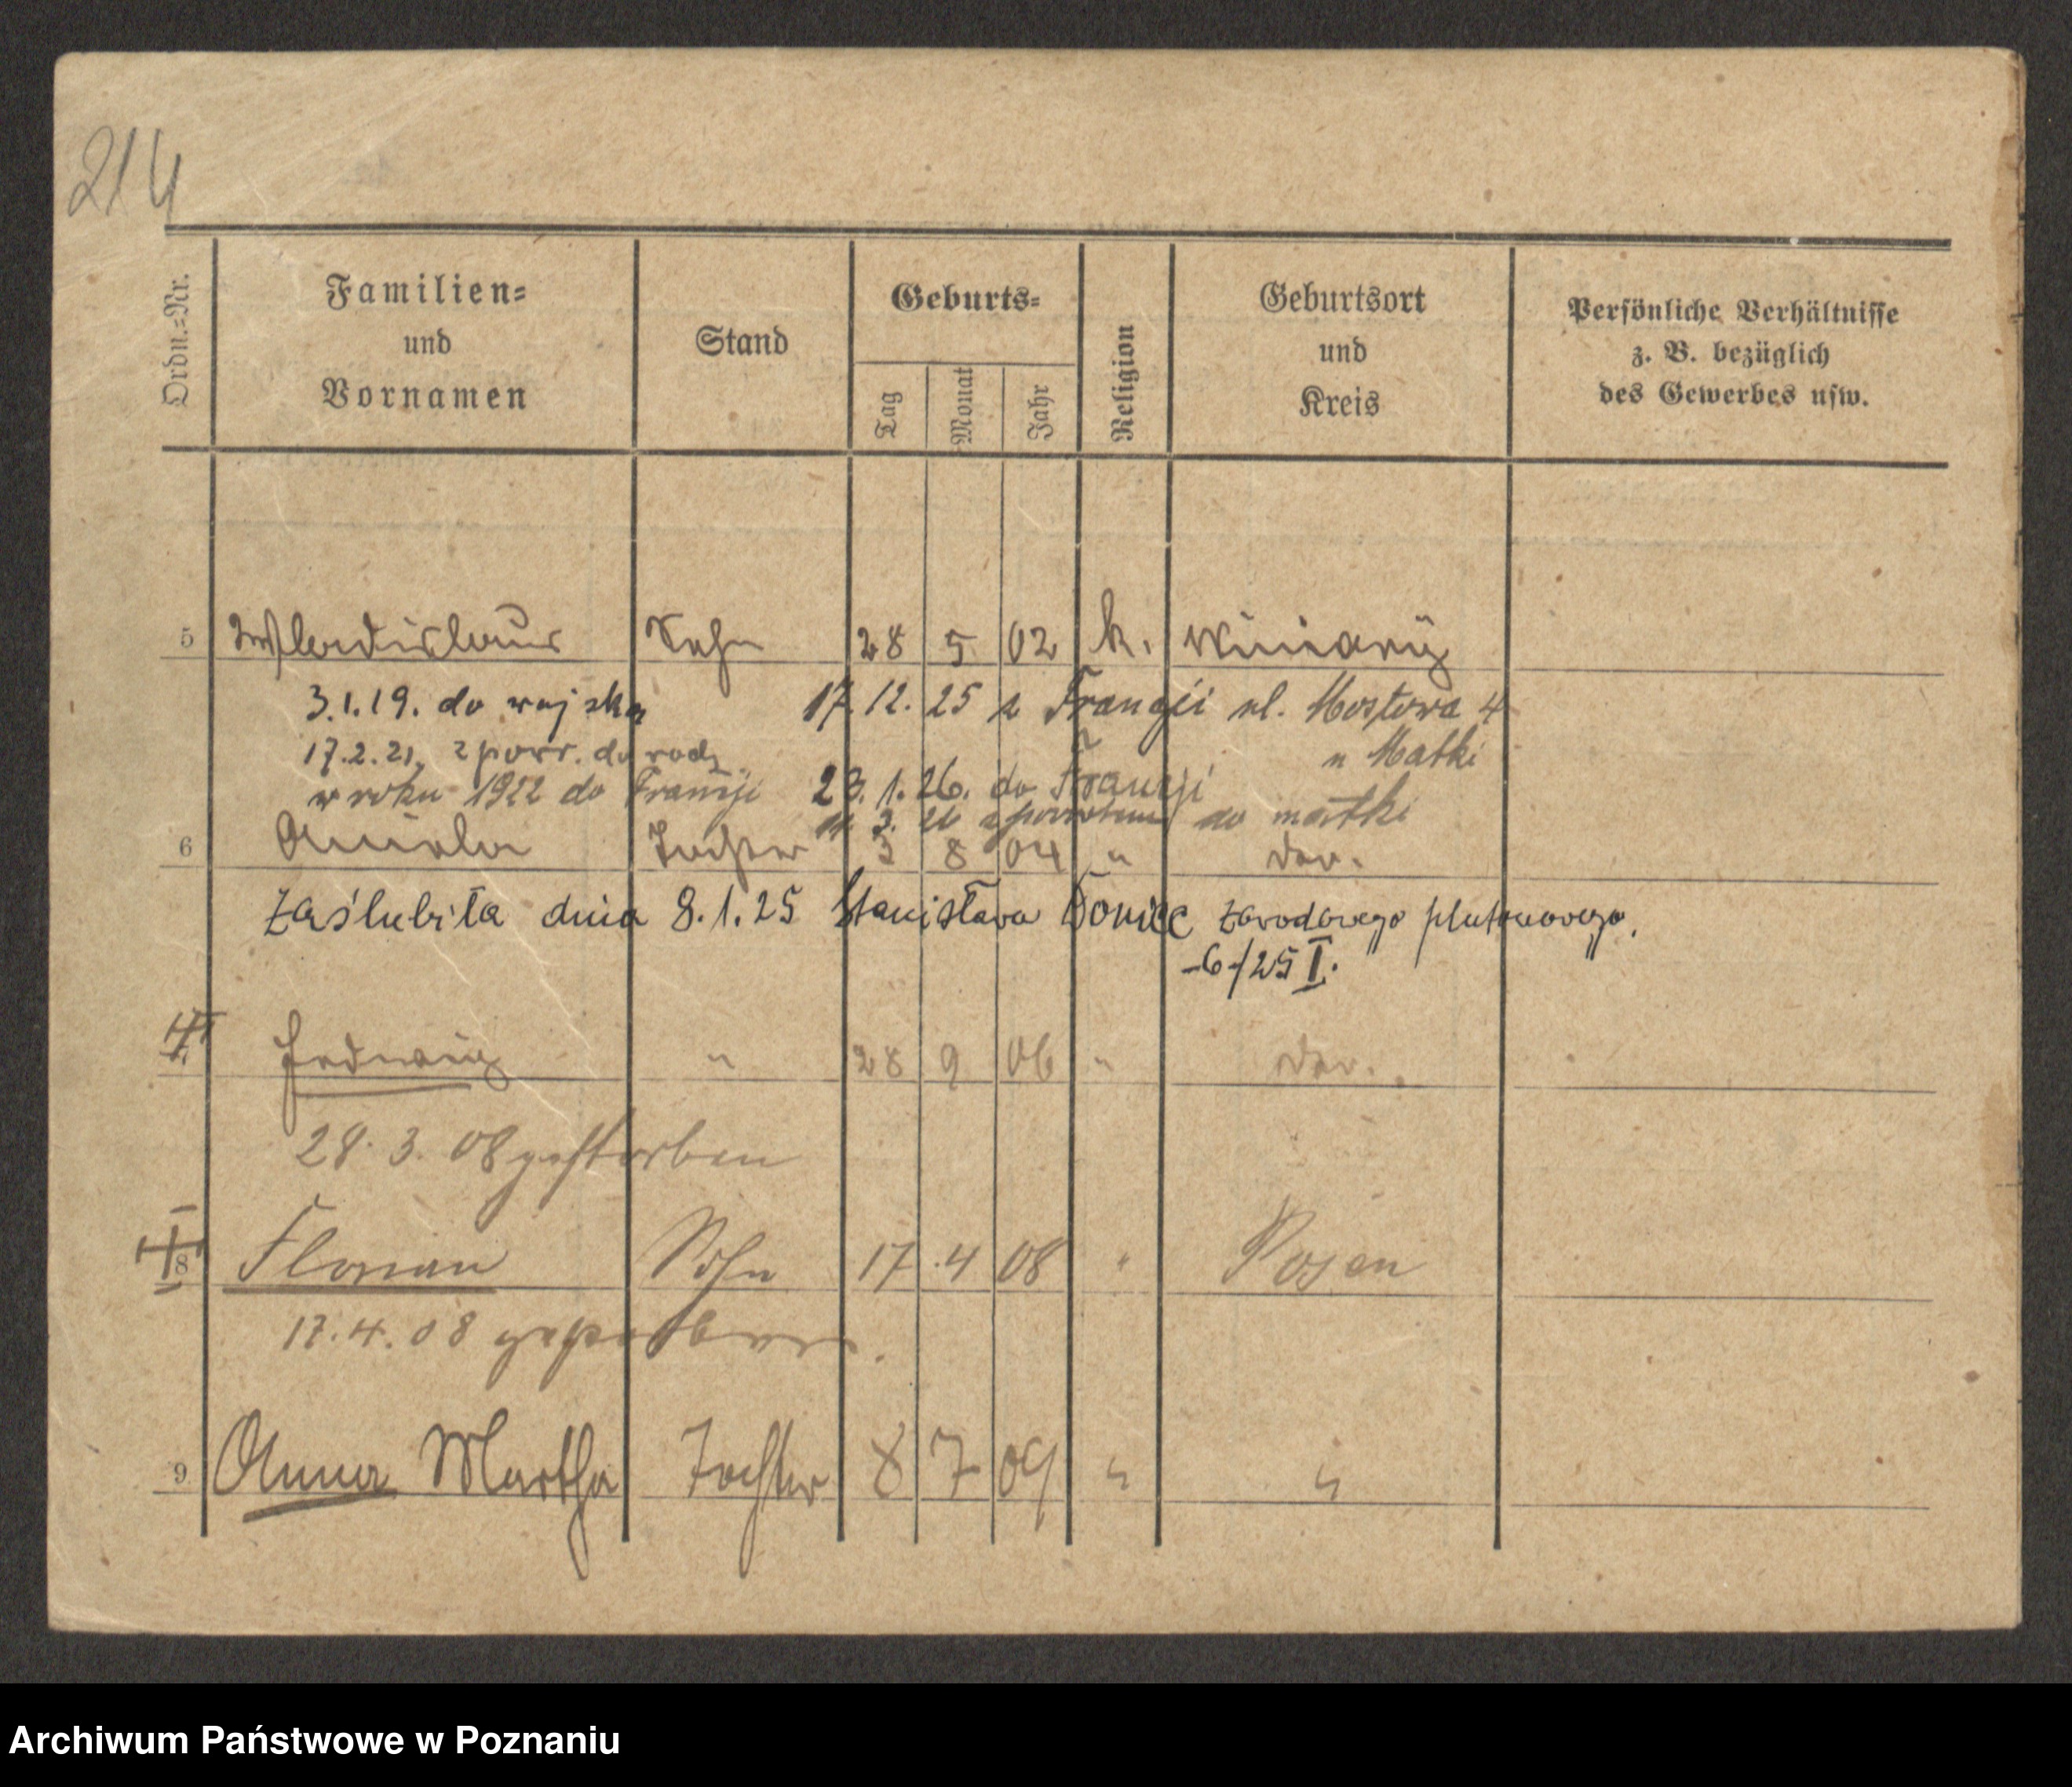 214
Ordn.-Nr.
Familien-
und
Vornamen
Stand
Geburts-
Tag
Monat
Jahr
Religion
Geburtsort
und
Kreis
Persönliche Verhältnisse
z. B. bezüglich
des Gewerbes usw.
5 Wladislaus Sohn 28 5 02 k. Winiary
3.1.19. do wojska 17.12.25 z Francji ul. Mostowa 4
17.2.21. z powr. do rodz. u Matki
w roku 1922 do Francji 23.1.26. do Francji
z powrotem do matki
6 Aniela Tochter 3 8 04 " das.
Zaślubiła dnia 8.1.25 Stanisława zawodowego plutonowego.
-6-/25 I.
Hedwig " 28 9 06 " das.
28.3.08 gestorben
8 Florian Sohn 17 4 08 " Posen
17.4.08 gestorben.
9 Anna Martha Tochter 8 7 09 " "
Archiwum Państwowe w Poznaniu